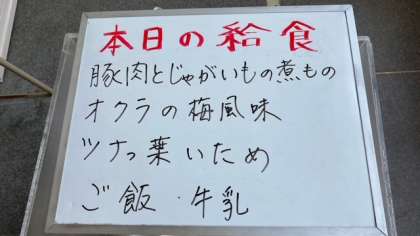 本日の給食
豚肉とじゃがいもの煮もの
オクラの梅風味
ツナっ葉いため
ご飯・牛乳